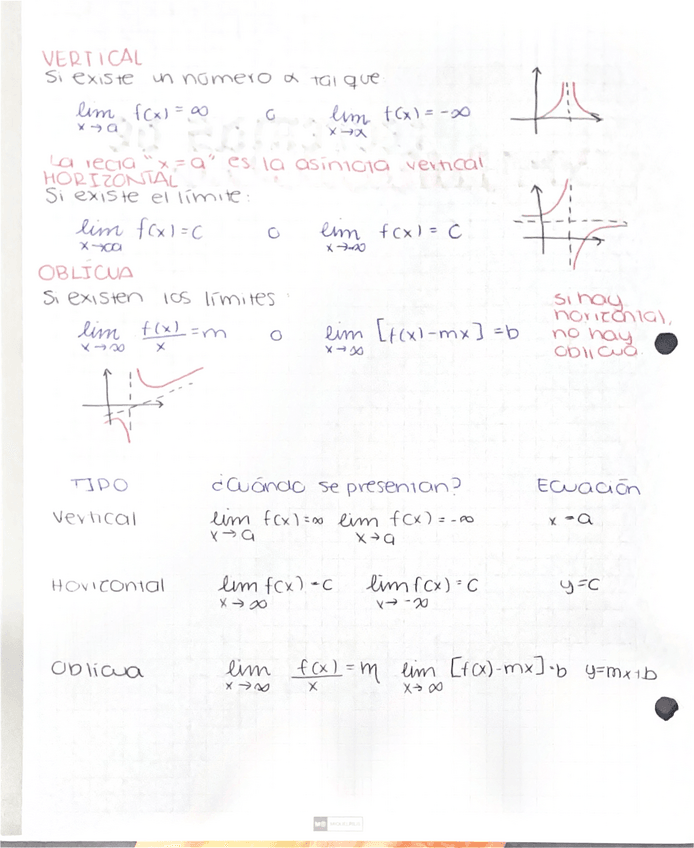 VERTICAL
Si existe un número a tal que
lim f(x) = ∞ o lim f(x) = -∞
x→a x→x
La recta "x=a" es la asintota vertical
HORIZONTAL
Si existe el límite:
lim f(x) = C o lim f(x) = C
x→∞ x→-∞
OBLÍCUA
Si existen los límites:
lim f(x)/x = m o lim [f(x)-mx] = b
x→∞ x→∞
si hay
horizontal,
no hay
oblicua.
TIPO ¿Cuándo se presentan? Ecuación
Vertical lim f(x) = ∞ lim f(x) = -∞ x = a
x→a x→a
Horizontal lim f(x) = C lim f(x) = C y=C
x→∞ x→-∞
Oblicua lim f(x)/x = m lim [f(x)-mx] = b y=mx+b
x→∞ x→∞